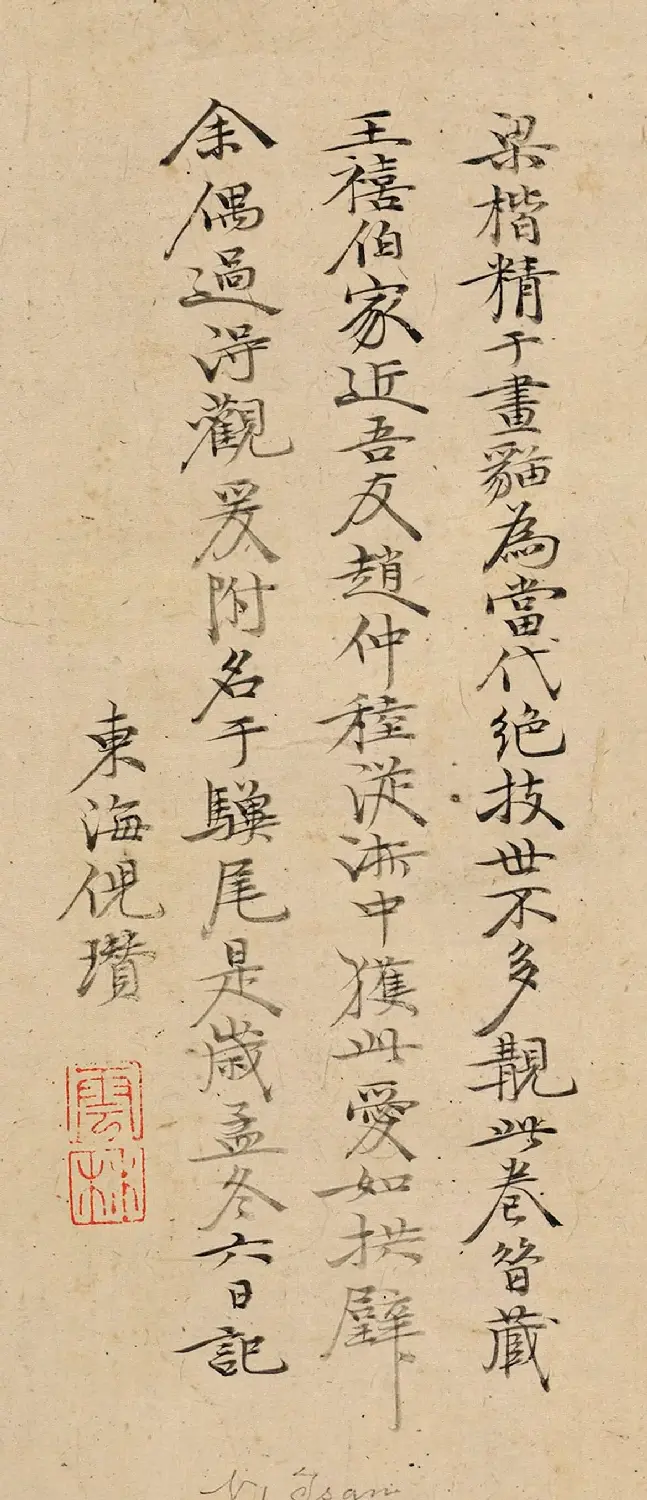 梁楷精于畫貓為當代絶技世不多覩此卷曾藏
王禧伯家近吾友趙仲穆從浙中獲此愛如拱璧
余偶過淂觀爰附名于驥尾是歲孟冬六日記
東海倪瓚
雲林
Ni Tsan